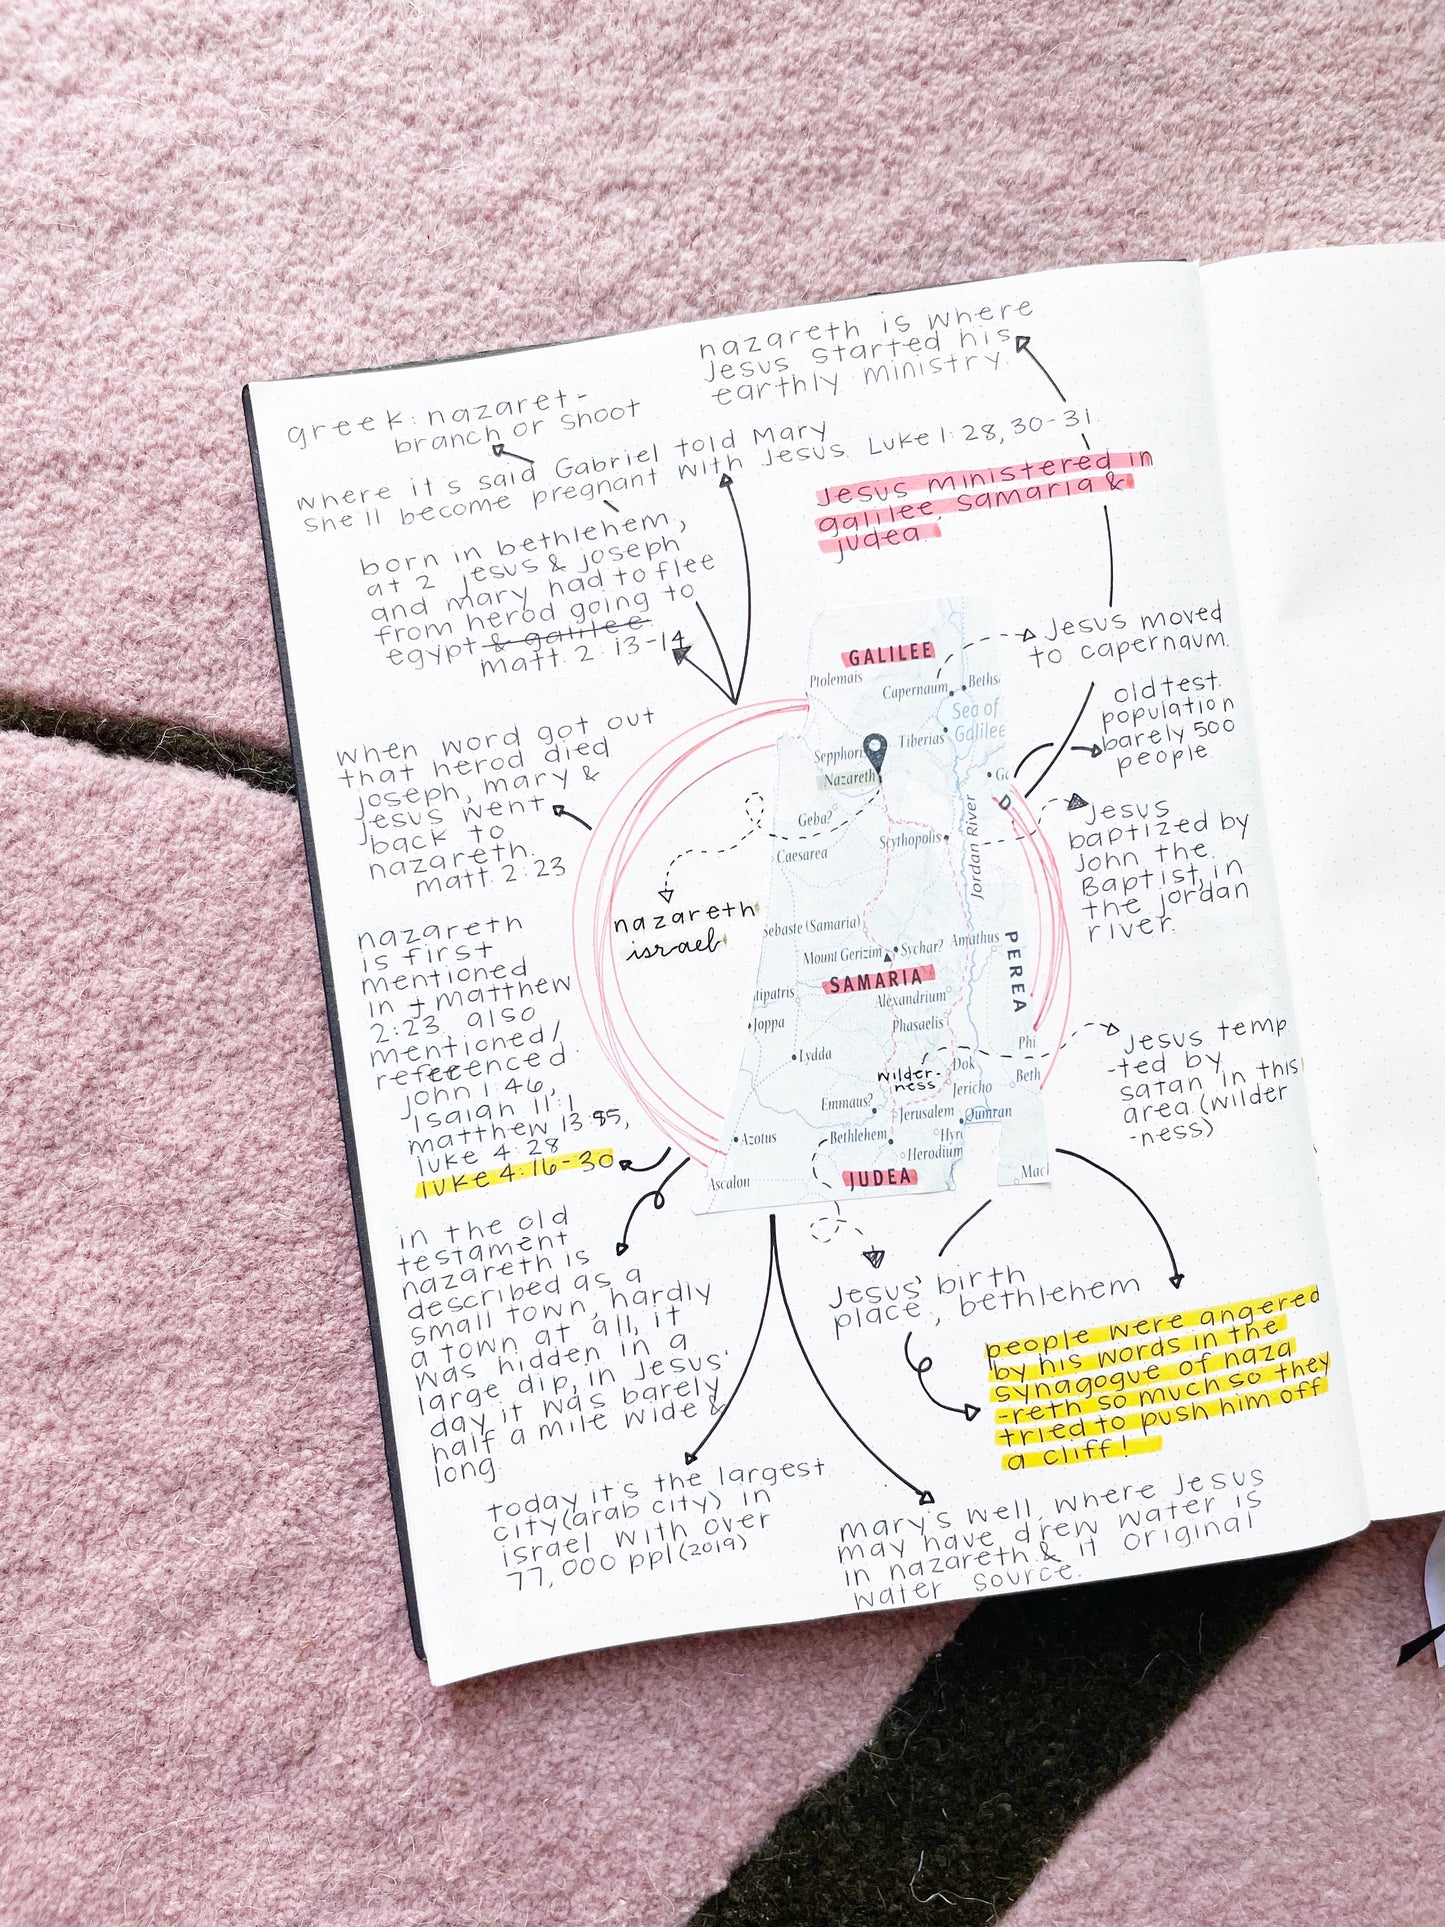 nazareth is where
Jesus started his
earthly ministry.
greek: nazaret -
branch or shoot
where it's said Gabriel told Mary
she'll become pregnant with Jesus. Luke 1: 28, 30-31.
Jesus ministered in
galilee, samaria &
judea.
born in bethlehem,
at 2 jesus & joseph
and mary had to flee
from herod going to
egypt & galilee
matt. 2: 13-14
Jesus moved
to capernaum.
old test.
population
barely 500
people
when word got out
that herod died
joseph, mary &
jesus went
back to
nazareth.
matt. 2:23
Jesus
baptized by
John the
Baptist, in
the jordan
river.
nazareth
israel
nazareth
is first
mentioned
in matthew
2:23. also
mentioned/
refeeenced:
john 1:46,
Isaiah 11:1
matthew 13:55,
luke 4:28
luke 4:16-30
Jesus temp
-ted by
satan in this
area (wilder
-ness)
in the old
testament
nazareth is
described as a
small town, hardly
a town at all, it
was hidden in a
large dip, in Jesus'
day it was barely
half a mile wide &
long.
Jesus' birth
place, bethlehem
people were angered
by his words in the
synagogue of naza
-reth so much so they
tried to push him off
a cliff!
today it's the largest
city (arab city) in
israel with over
77,000 ppl (2019)
mary's well, where Jesus
may have drew water is
in nazareth & it original
water source.
GALILEE
Ptolemais
Capernaum
Beths
Sea of
Galilee
Tiberias
Sepphori
Nazareth
Geba?
Caesarea
Scythopolis
Jordan River
Sebaste (Samaria)
Mount Gerizim
Sychar?
Amathus
PEREA
SAMARIA
tipatris
Alexandrium
Joppa
Phasaelis
Phi
Lydda
wilder-
ness
Dok
Jericho
Beth
Emmaus?
Jerusalem
Qumran
Azotus
Bethlehem
Hyr
Herodium
JUDEA
Ascalon